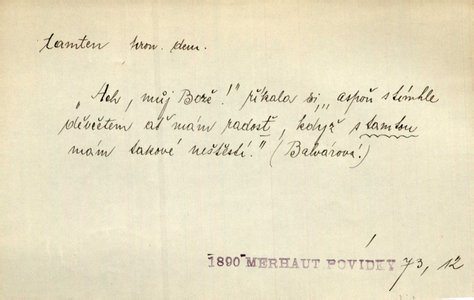 tamten pron. dem.
„Ach, můj Bože!" říkala si, „aspoň s tímhle
děvčetem ať mám radosť, když s tamtou
mám takové neštěstí." (Balvárová.)
1890 MERHAUT POVÍDKY 73, 12